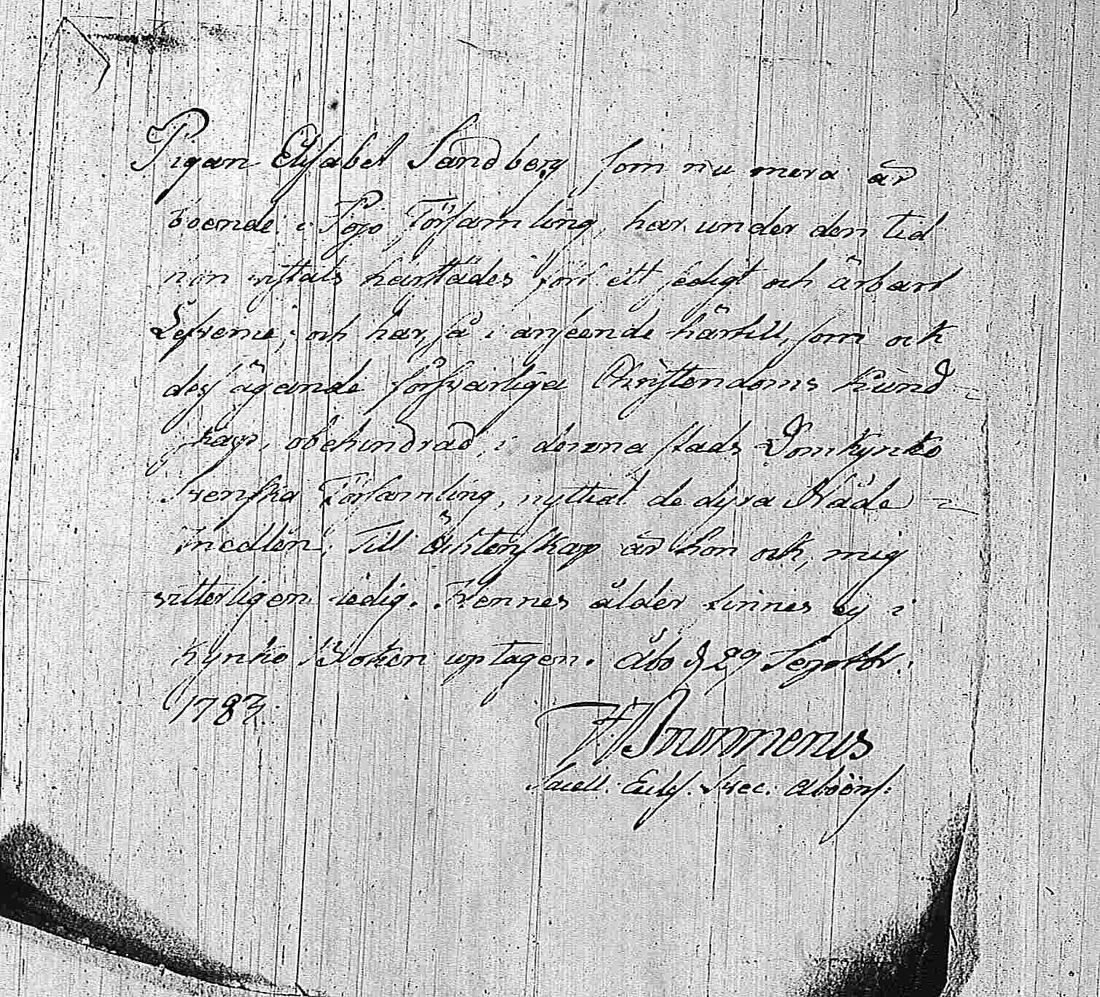 Pigan Elisabet Sandberg, som nu mera är
boende i Pojo Församling, har under den tid
hon vistats härstädes fört ett sedigt och ärbart
Lefverne; och har, så i anseende härtill, som ock
dess ägande försvarliga Christendoms Kund=
skap, obehindrad, i denna stads Domkyrko
Svenska Församling, nyttiat de dyra Nåde=
medlen; Till Ächtenskap är hon ock, mig
vitterligen ledig. Hennes ålder finnes ej i
Kyrko Boken uptagen. Åbo d 29 Septbr.
1783.
Brunnerus
Sacell. Eccles. Svec. Aboëns.